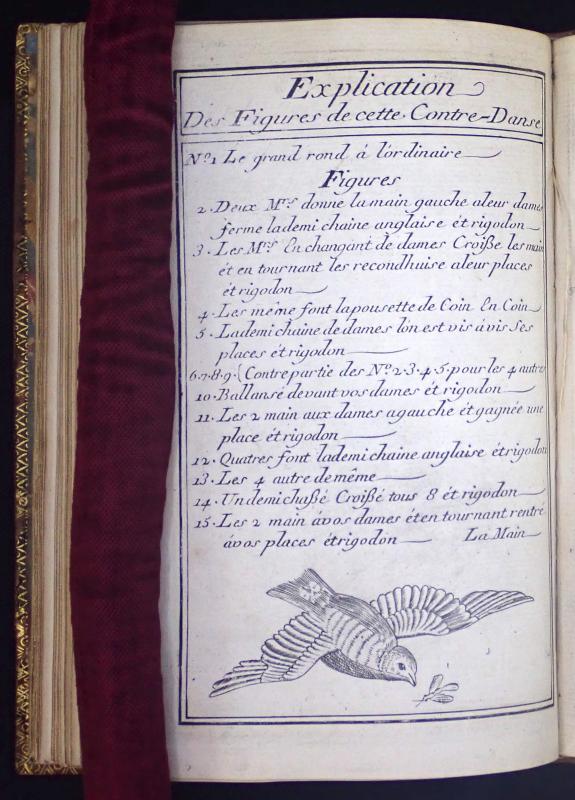 Explication
Des Figures de cette Contre-Danse
No. 1 Le grand rond á lórdinaire
Figures
2. Deux Mrs. donne la main gauche aleur dames
ferme lademi chaine anglaise ét rigodon
3. Les Mrs. En changant de dames Croiße les main
ét en tournant les recondhuise aleur places
ét rigodon
4. Les même font lapousette de Coin En Coin
5. Lademi chaine de dames lón est vis ávis Ses
places ét rigodon
6.7.8.9.{Contre partie des No. 2.3.4.5. pour les 4 autres
10. Ballansé devant vos dames ét rigodon
11. Les 2 main aux dames agauche ét gagnée une
place ét rigodon
12. Quatres font lademi chaine anglaise ét rigodon
13. Les 4 autre de même
14. Un demi chaßé Croißé tous 8 ét rigodon
15. Les 2 main ávos dames ét en tournant rentré
ávos places ét rigodon La Main